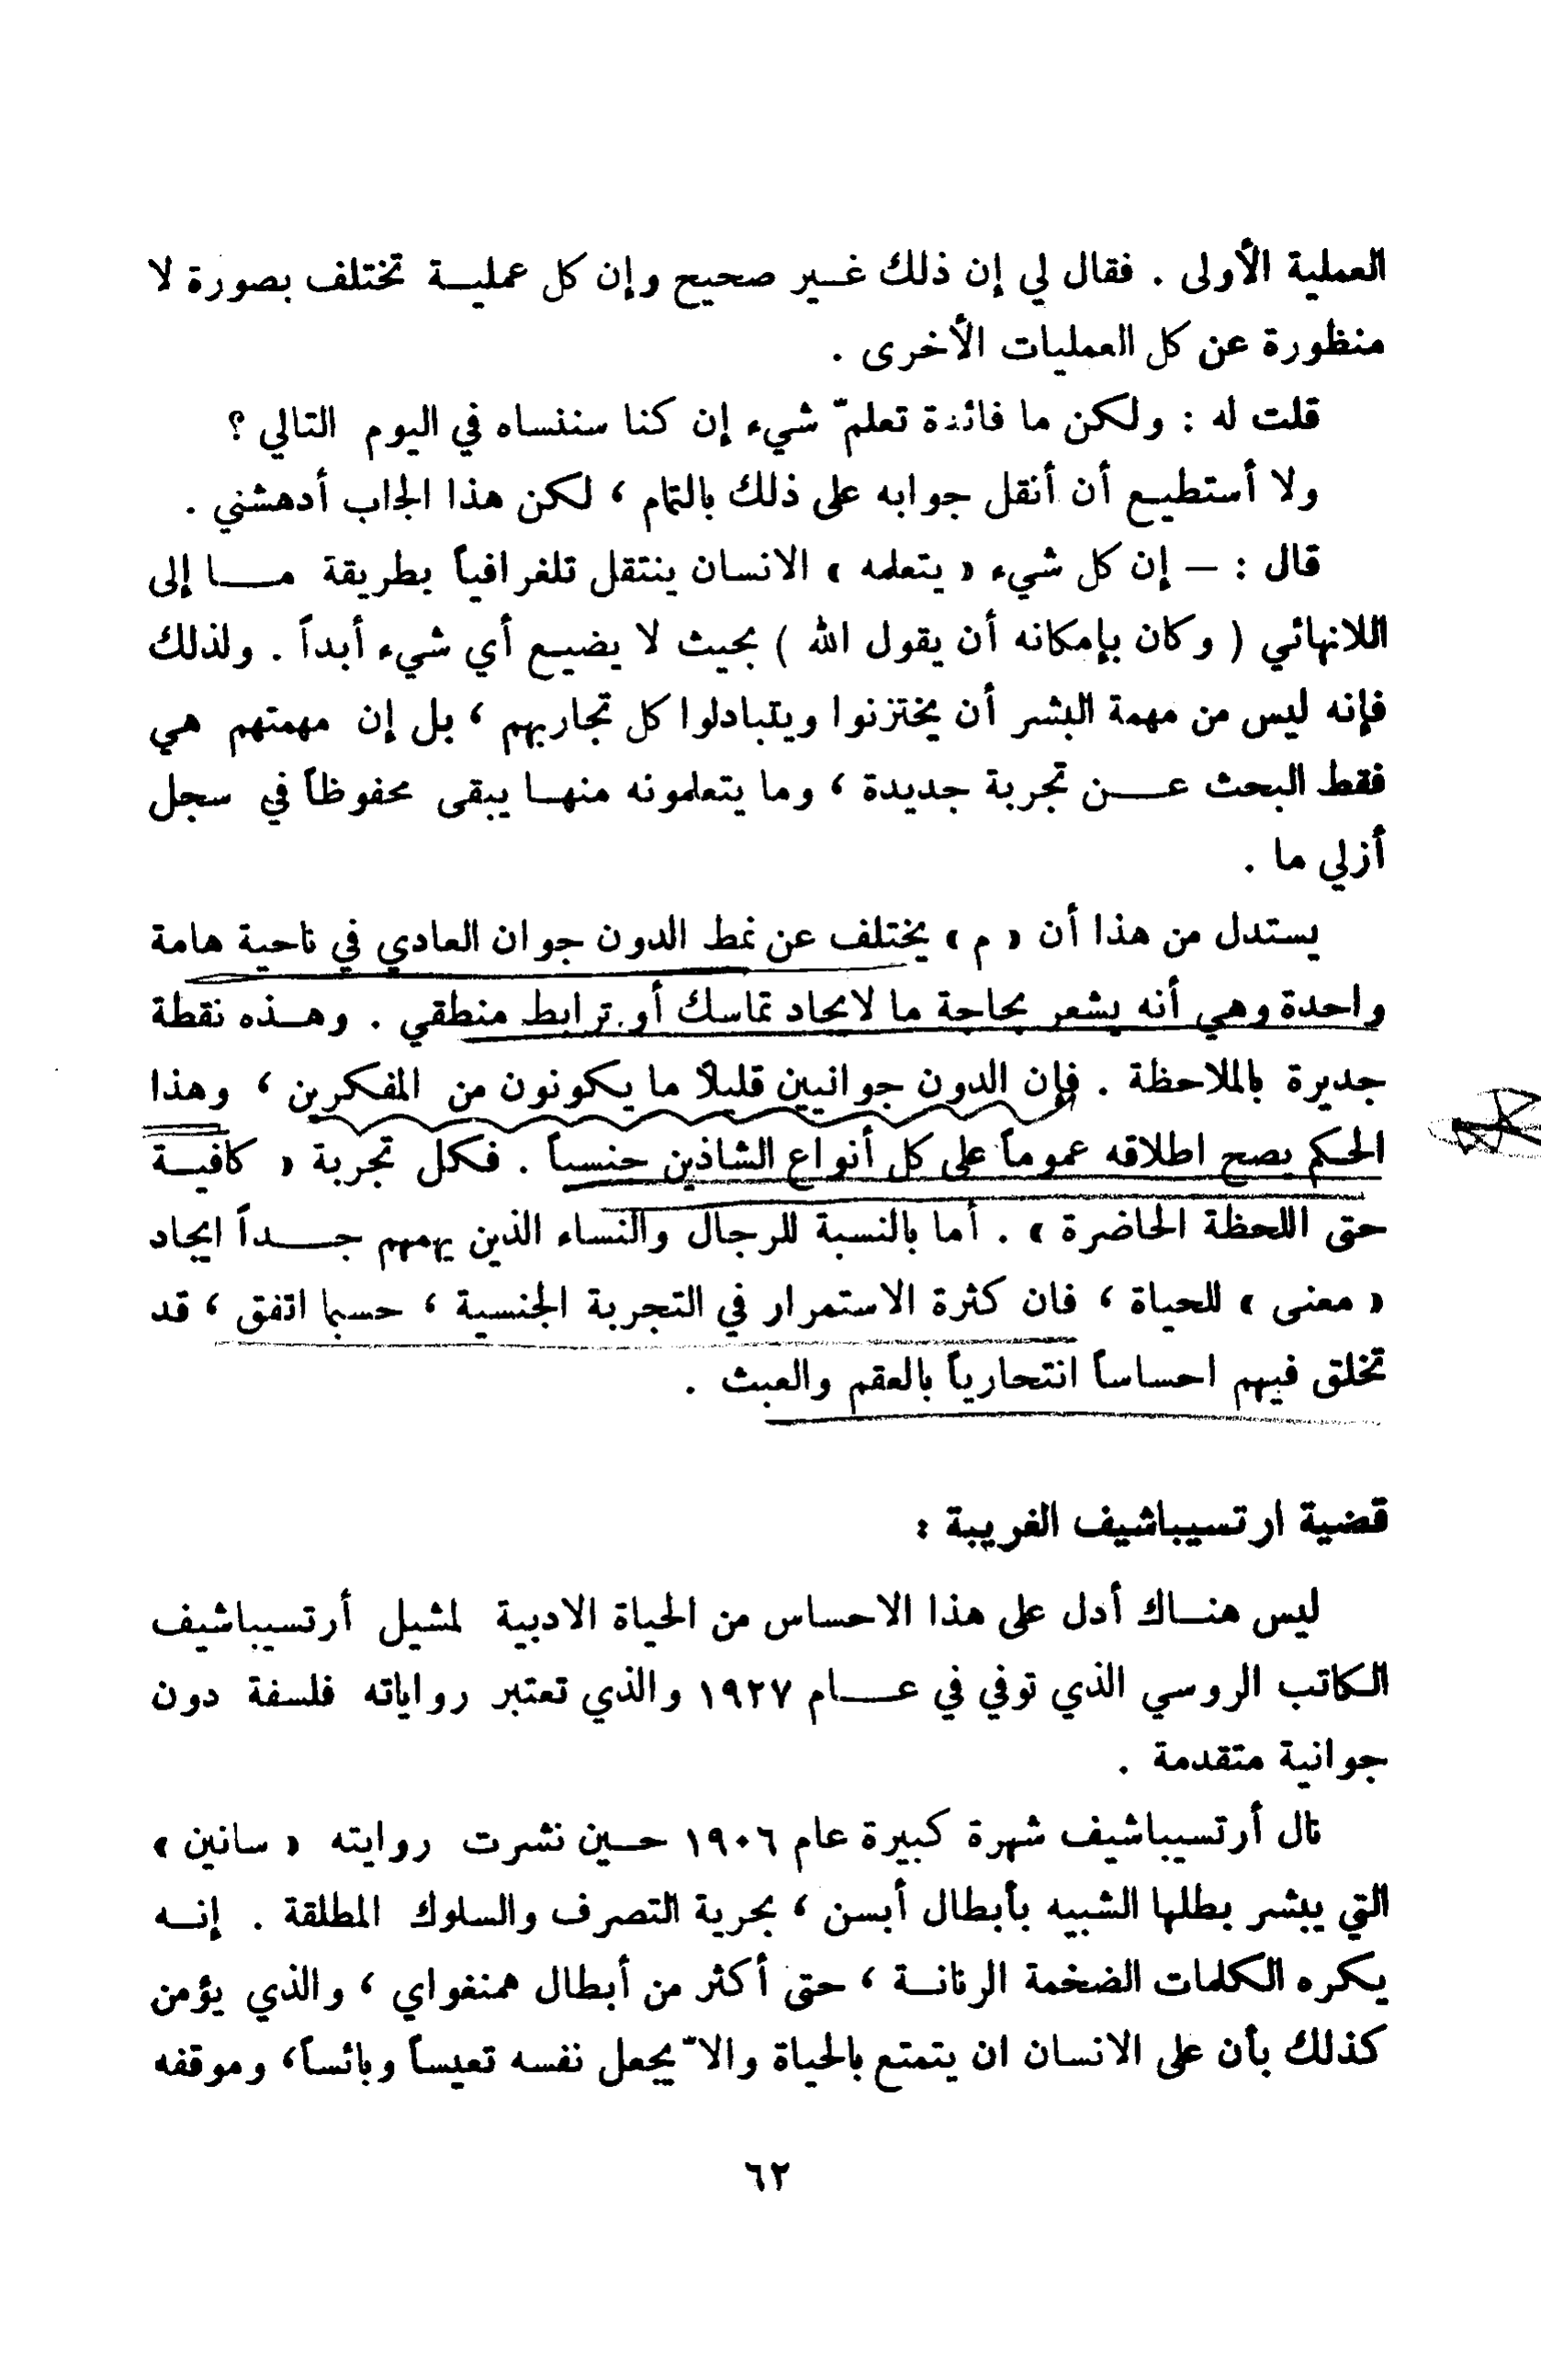 العملية الأولى . فقال لي إن ذلك غـير صحيح وإن كل عمليـة تختلف بصورة لا
منظورة عن كل العمليات الأخرى .
قلت له : ولكن ما فائدة تعلمّ شيء إن كنا سننساه في اليوم التالي ؟
ولا أستطيع أن أنقل جوابه على ذلك بالتمام ، لكن هذا الجاب أدهشني .
قال : — إن كل شيء « يتعلمه » الانسان ينتقل تلغرافياً بطريقة مـا إلى
اللانهائي ( وكان بإمكانه أن يقول الله ) بحيث لا يضيع أي شيء أبداً . ولذلك
فإنه ليس من مهمة البشر أن يختزنوا ويتبادلوا كل تجاربهم ، بل إن مهمتهم هي
فقط البحث عـن تجربة جديدة ، وما يتعلمونه منهـا يبقى محفوظاً في سجل
أزلي ما .
يستدل من هذا أن « م » يختلف عن نمط الدون جوان العادي في ناحية هامة
واحدة وهي أنه يشعر بحاجة ما لايجاد تماسك أو ترابط منطقي . وهـذه نقطة
جديرة بالملاحظة . فإن الدون جوانيين قليلاً ما يكونون من المفكرين ، وهذا
الحكم يصح اطلاقه عموماً على كل أنواع الشاذين جنسياً . فكل تجربة « كافيـة
حتى اللحظة الحاضرة » . أما بالنسبة للرجال والنساء الذين يهمهم جـداً ايجاد
« معنى » للحياة ، فان كثرة الاستمرار في التجربة الجنسية ، حسبما اتفق ، قد
تخلق فيهم احساساً انتحارياً بالعقم والعبث .
قضية ارتسيباشيف الغريبة :
ليس هنـاك أدل على هذا الاحساس من الحياة الادبية لمشيل أرتسيباشيف
الكاتب الروسي الذي توفي في عـام ١٩٢٧ والذي تعتبر رواياته فلسفة دون
جوانية متقدمة .
نال أرتسيباشيف شهرة كبيرة عام ١٩٠٦ حـين نشرت روايته « سانين »
التي يبشر بطلها الشبيه بأبطال أبسن ، بحرية التصرف والسلوك المطلقة . إنـه
يكره الكلمات الضخمة الرنانـة ، حتى أكثر من أبطال همنغواي ، والذي يؤمن
كذلك بأن على الانسان ان يتمتع بالحياة والاّ يجعل نفسه تعيساً وبائساً، وموقفه
٦٢